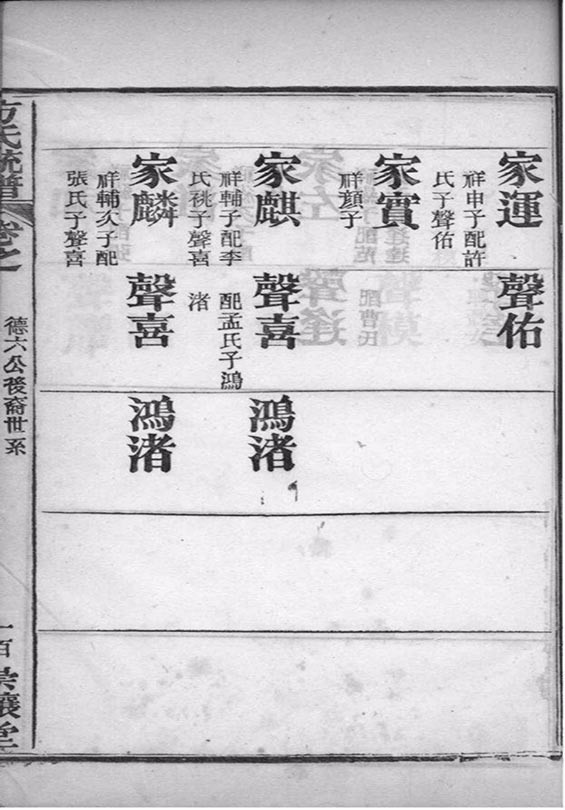 家運
祥申子配許
氏子聲佑
家實
祥顏子
家麒
祥輔子配李
氏祧子聲喜
家麟
祥輔次子配
張氏子聲喜
聲佑
聲喜
配孟氏子鴻
渚
聲喜
鴻渚
鴻渚
方氏統譜
卷之
德六公後裔世系
一百